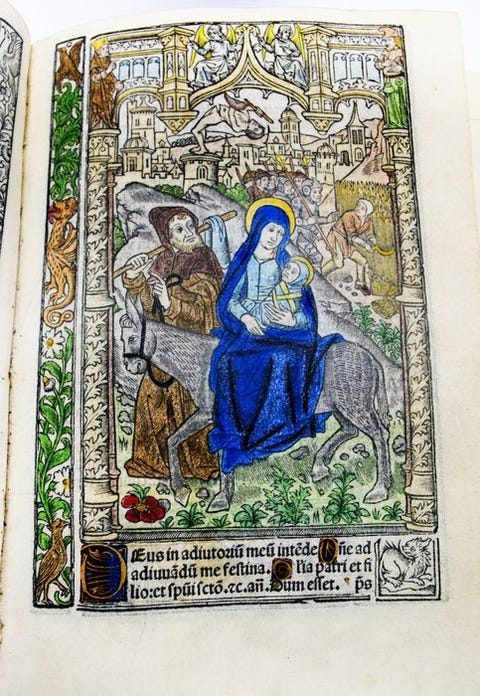 Deus in adiutoriū meū intēde Dn̄e ad
adiuuādū me festina. Gl'ia patri et fi
lio: et sp̄ui sctō. ⁊c. an̄. Dum esset. ps̄